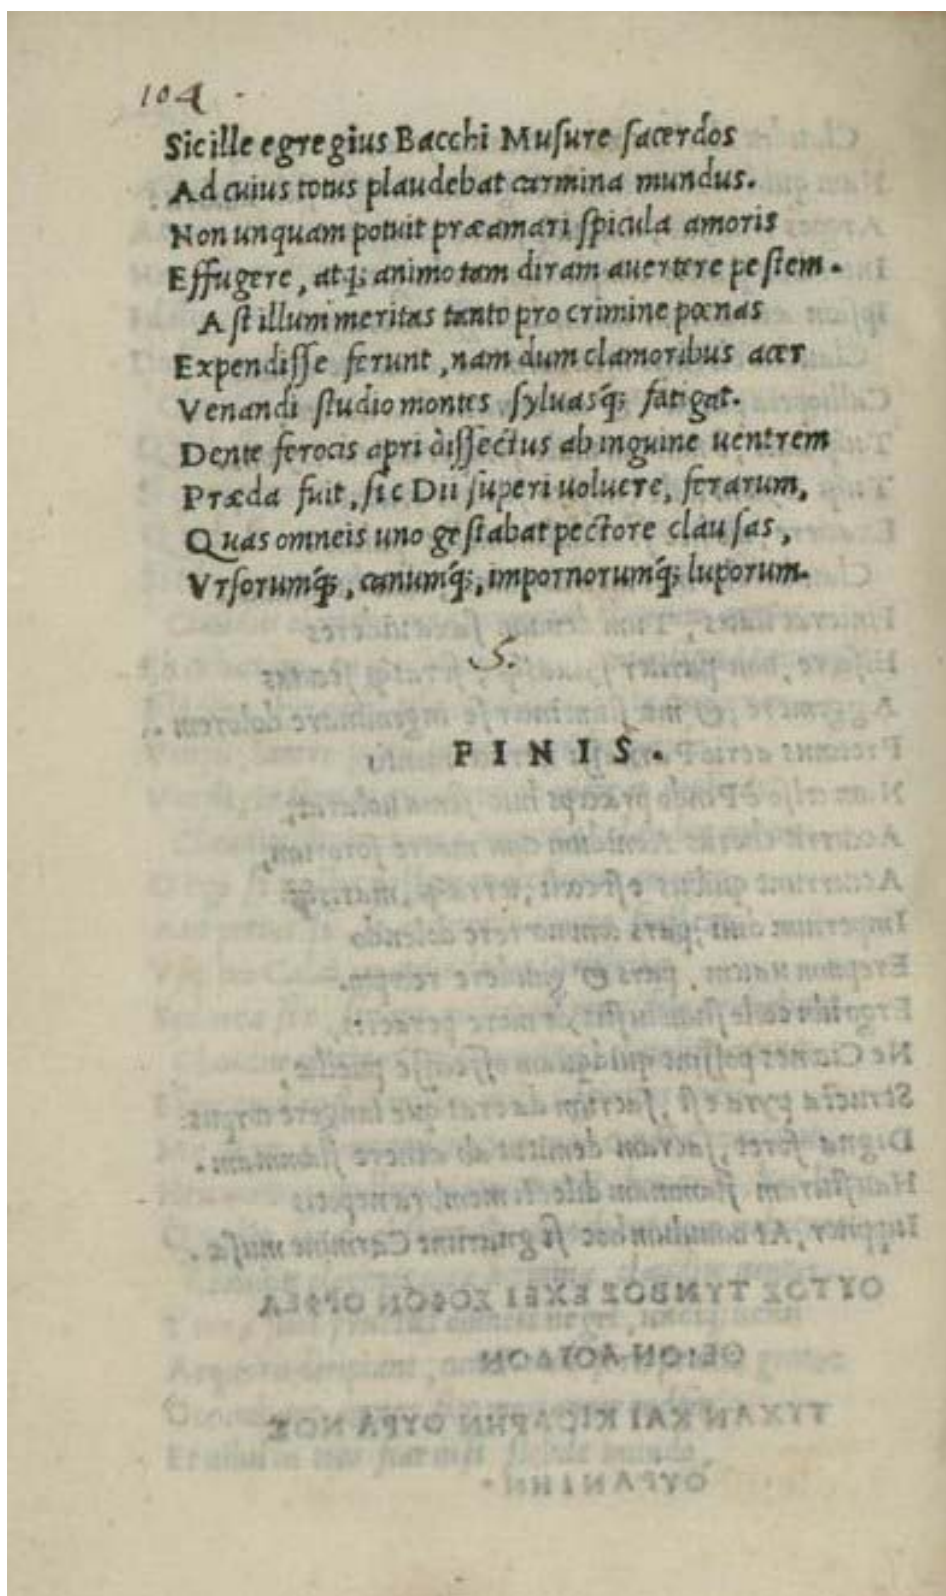 104
Sic ille egregius Bacchi Musure sacerdos
Ad cuius totus plaudebat carmina mundus.
Non unquam potuit præamari spicula amoris
Effugere, atq; animo tam diram auertere pestem.
Ast illum meritas tanto pro crimine pœnas
Expendisse ferunt, nam dum clamoribus acer
Venandi studio montes syluasq́; fatigat.
Dente ferocis apri dissectus ab inguine uentrem
Præda fuit, sic Dii superi uoluere, ferarum,
Quas omneis uno gestabat pectore clausas,
Vrsorumq́;, canumq́;, impornorumq́; luporum.
S.
FINIS.